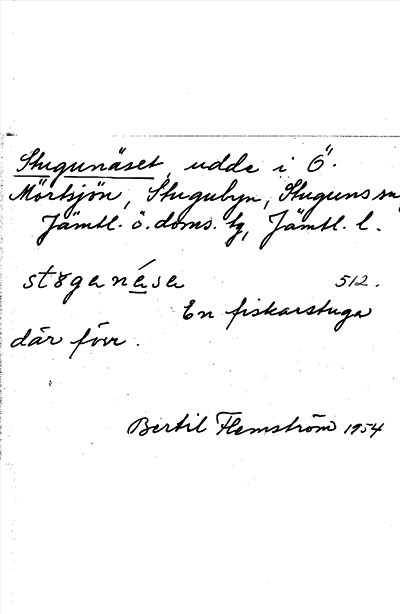 Stugunäset, udde i Ö.
Mörtsjön, Stugubyn, Stuguns sn
Jämtl. ö. doms. tg, Jämtl. l.
støganésa 512.
En fiskarstuga
där förr.
Bertil Flemström 1954